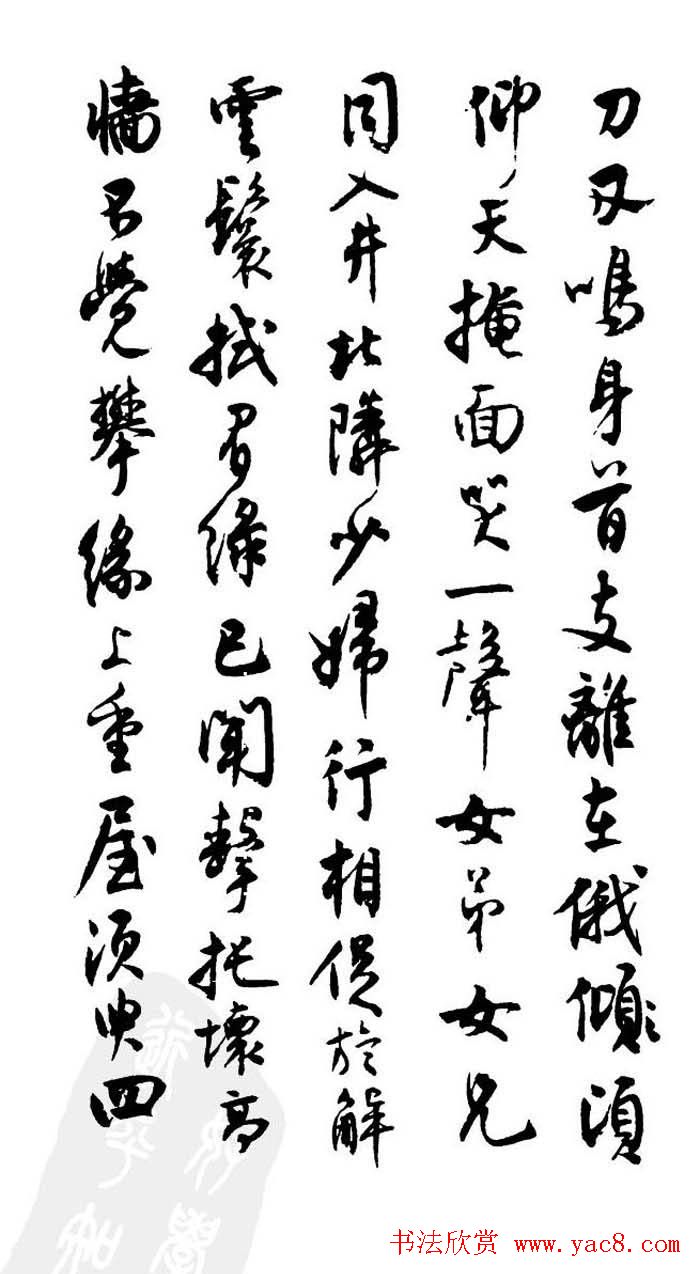 刀刃鳴身首支離在俄傾須
仰天掩面哭一聲女弟女兄
同入井北隣少婦行相促旋解
雲鬟拭眉綠已聞擊托壞高
墻不覺攀緣上重屋須臾四
书法欣赏 www.yac8.com